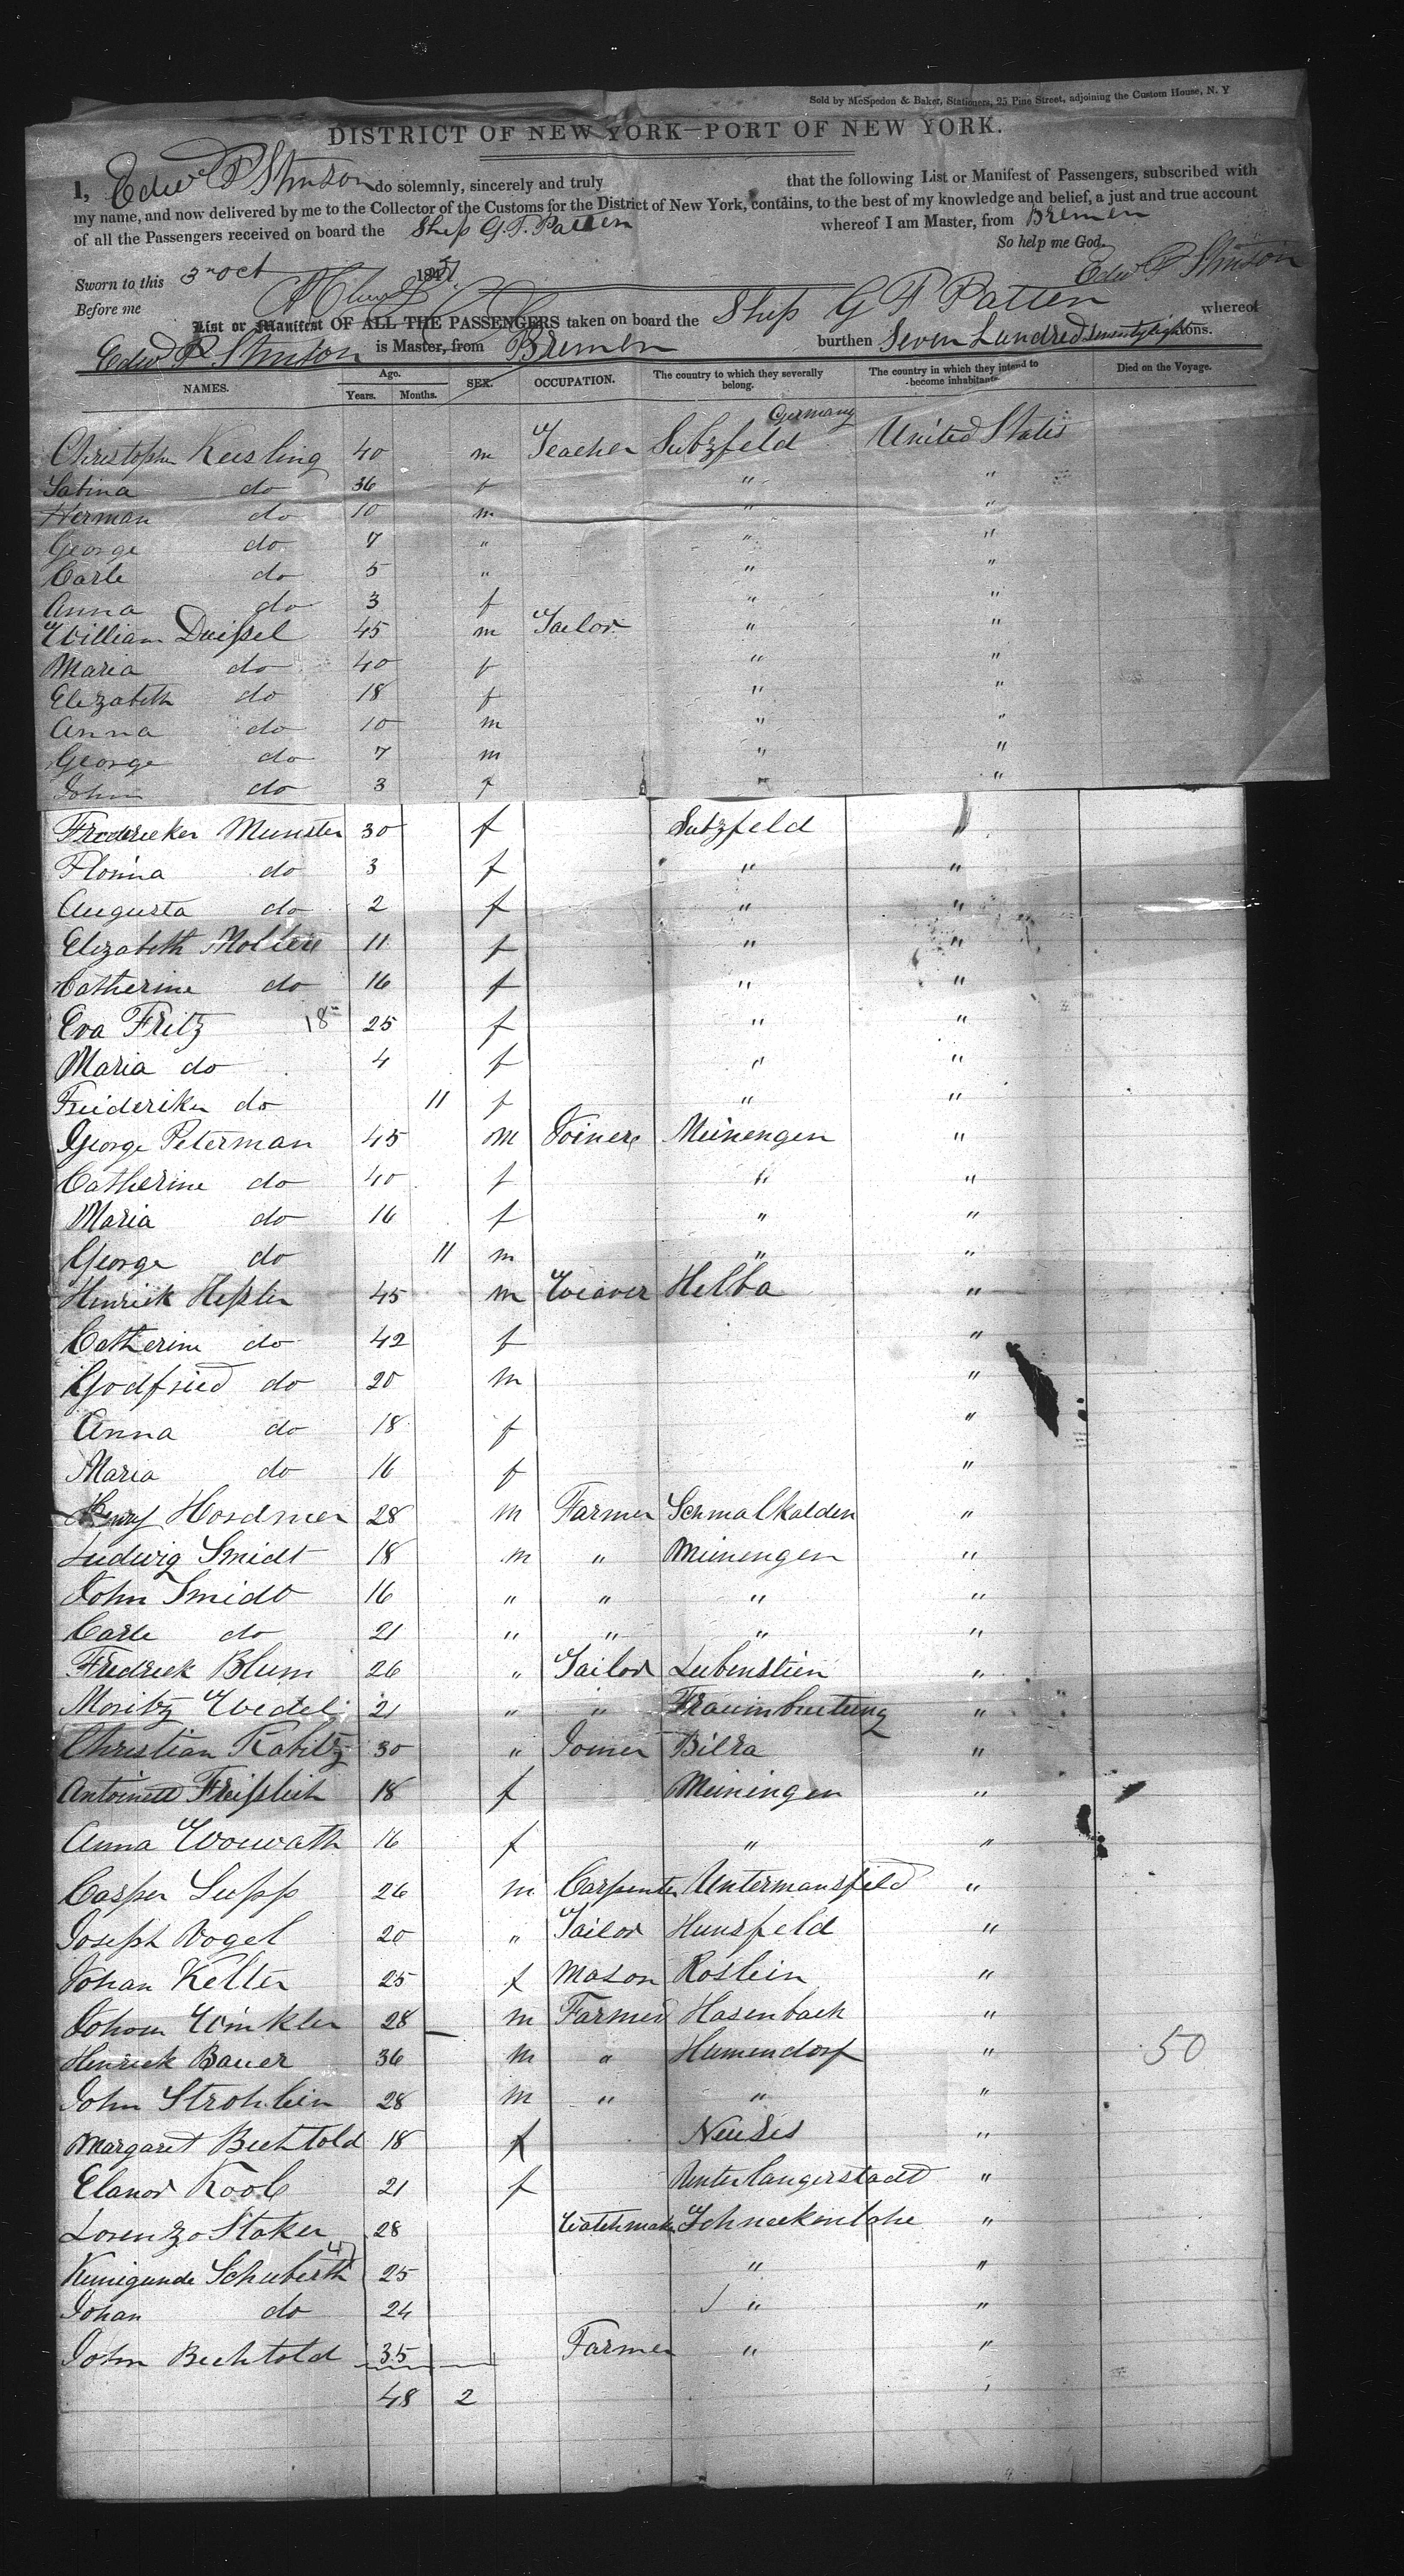 Sold by McSpedon & Baker, Stationers, 25 Pine Street, adjoining the Custom House, N. Y
DISTRICT OF NEW YORK—PORT OF NEW YORK.
I, Edwd P Stinson do solemnly, sincerely and truly that the following List or Manifest of Passengers, subscribed with
my name, and now delivered by me to the Collector of the Customs for the District of New York, contains, to the best of my knowledge and belief, a just and true account
of all the Passengers received on board the Ship G. F. Patten whereof I am Master, from Bremen
So help me God.
Sworn to this 3rd Oct 1851 Edwd P Stinson
Before me
List or Manifest OF ALL THE PASSENGERS taken on board the Ship G F Patten whereof
Edwd P Stinson is Master, from Bremen burthen Seven hundred seventy eight tons.
NAMES. Age. Years. Months. SEX. OCCUPATION. The country to which they severally belong. The country in which they intend to become inhabitants. Died on the Voyage.
Germany
Christopher Keesling 40 m Teacher Sulzfeld United States
Sabina do 36 f " "
Herman do 10 m " "
George do 7 " " "
Carle do 5 " " "
Anna do 3 f " "
William Deissel 45 m Tailor " "
Maria do 40 f " "
Elezabeth do 18 f " "
Anna do 10 m " "
George do 7 m " "
John do 3 f " "
Fredericker Munster 30 f Sulzfeld "
Florina do 3 f " "
Augusta do 2 f " "
Elezabeth 11 f " "
Catherine do 16 f " "
Eva Fritz 18 25 f " "
Maria do 4 f " "
Freideriker do 11 f " "
George Peterman 45 m Joiner Meinengen "
Catherine do 40 f " "
Maria do 16 f " "
George do 11 m " "
Henrick Hessler 45 m Weaver Helba "
Catherine do 42 f "
Godfried do 20 m "
Anna do 18 f "
Maria do 16 f "
Henry Hosdmer 28 m Farmer Schmalkalden "
Ludwig Smidt 18 m " Meinengen "
John Smidt 16 " " " "
Carle do 21 " " " "
Fredrick Blum 26 " Tailor Leibenstein "
Moritz Weidel 21 " " Frauimbreitung "
Christian Rabitz 30 " Joiner Bilra "
Antoinett Freisslich 18 f Meiningen "
Anna Worwath 16 f " "
Casper Supp 26 m Carpenter Untermansfeld "
Joseph Vogel 20 " Tailor Hunsfeld "
Johan Kelter 25 f Mason Roslein "
Johan Winkler 28 m Farmer Hasenbach "
Henrick Bauer 36 m " Humendorf " 50
John Strohlein 28 m " " "
Margaret Bechtold 18 f Neuses "
Elanor Koob 21 f Unterlangerstadt "
Lorenzo Staker 28 Watchmaker Schneckenlohe "
Kunigunde Schuberth 25 " "
Johan do 24 " "
John Bechtold 35 Farmer " "
48 2